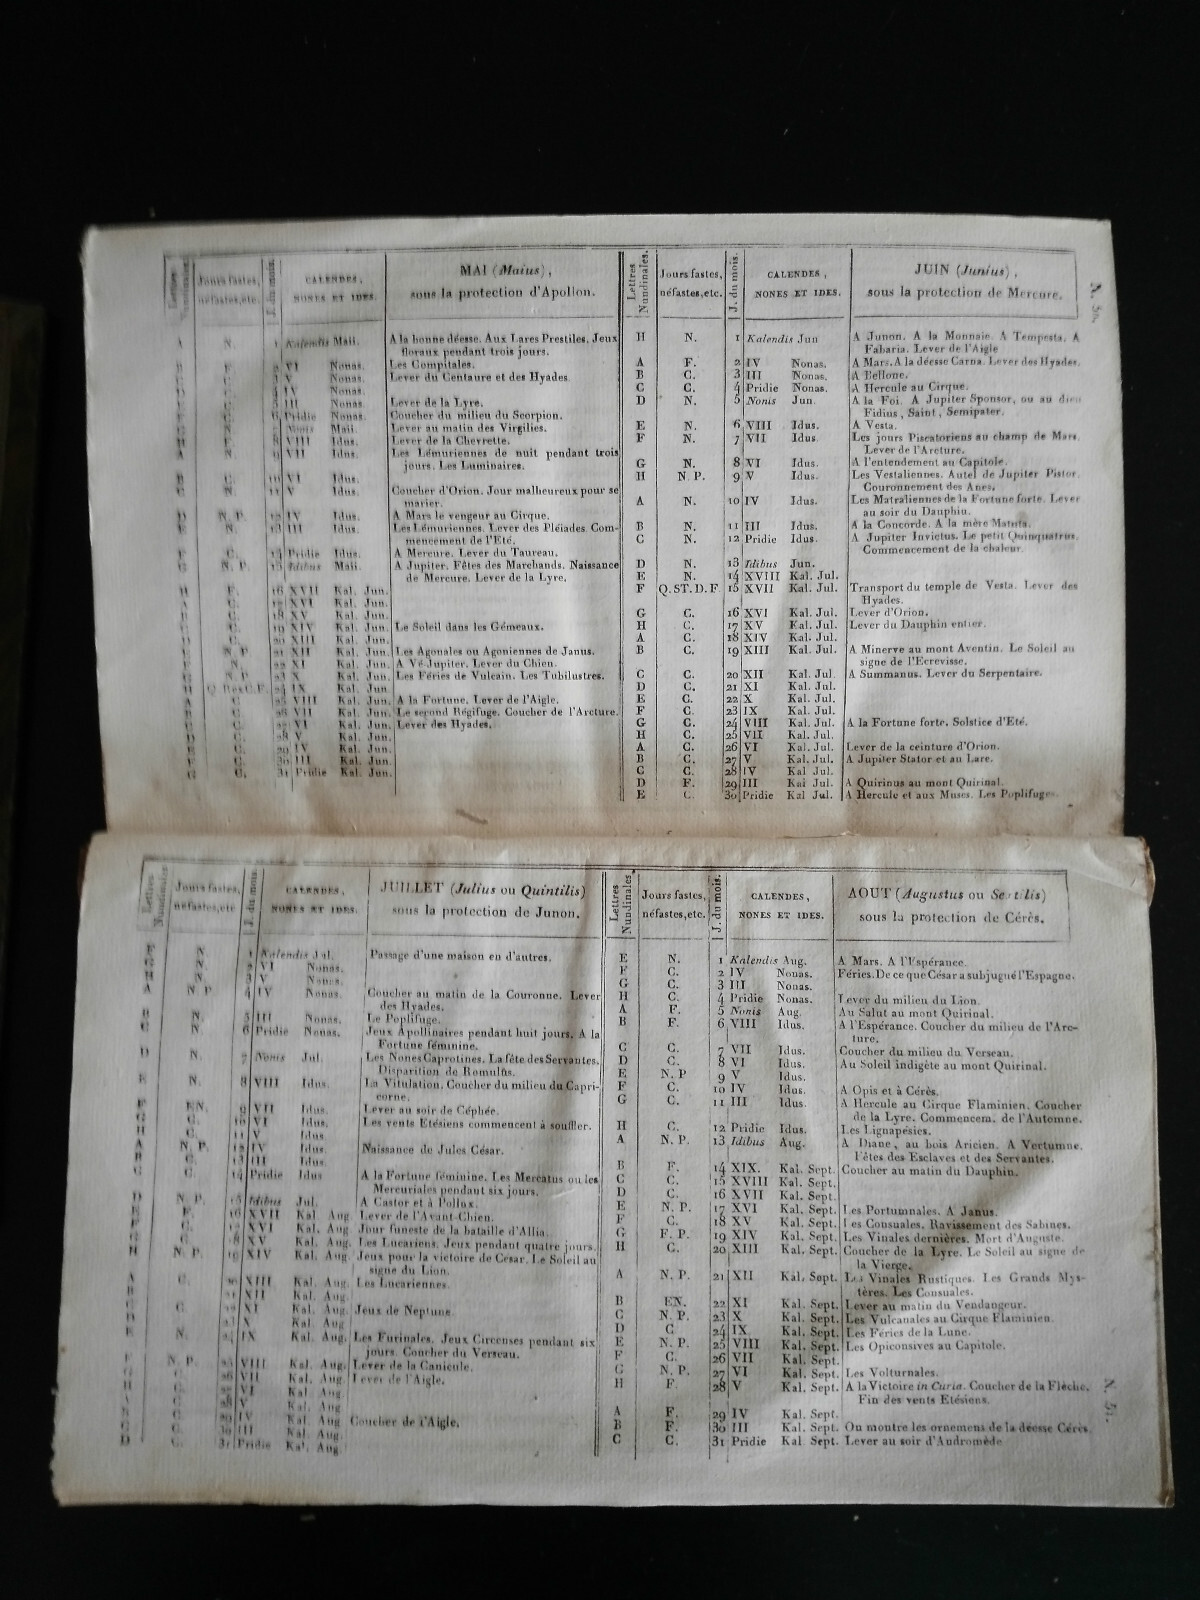 MAI (Maius),
sous la protection d'Apollon.
Jours fastes,
néfastes, etc.
J. du mois.
CALENDES,
NONES ET IDES.
1 Kalendis Maii. A la bonne déesse. Aux Lares Prestiles. Jeux
floraux pendant trois jours.
VI Nonas. Les Compitales.
V Nonas. Lever du Centaure et des Hyades.
IV Nonas.
III Nonas. Lever de la Lyre.
6 Pridie Nonas. Coucher du milieu du Scorpion.
Nonis Maii. Lever au matin des Virgilies.
VIII Idus. Lever de la Chevrette.
VII Idus. Les Lémuriennes de nuit pendant trois
jours. Les Luminaires.
VI Idus.
V Idus. Coucher d'Orion. Jour malheureux pour se
marier.
N. P. 12 IV Idus. A Mars le vengeur au Cirque.
N. 13 III Idus. Les Lémuriennes. Lever des Pléiades. Com-
mencement de l'Eté.
C. 14 Pridie Idus. A Mercure. Lever du Taureau.
N. P. 15 Idibus Maii. A Jupiter. Fêtes des Marchands. Naissance
de Mercure. Lever de la Lyre.
F. 16 XVII Kal. Jun.
C. 17 XVI Kal. Jun.
C. 18 XV Kal. Jun.
C. 19 XIV Kal. Jun. Le Soleil dans les Gémeaux.
C. 20 XIII Kal. Jun.
Kal. Jun. Les Agonales ou Agoniennes de Janus.
XI Kal. Jun. A Vé Jupiter. Lever du Chien.
X Kal. Jun. Les Féries de Vulcain. Les Tubilustres.
IX Kal. Jun.
VIII Kal. Jun. A la Fortune. Lever de l'Aigle.
VII Kal. Jun. Le second Régifuge. Coucher de l'Arcture.
VI Kal. Jun. Lever des Hyades.
V Kal. Jun.
IV Kal. Jun.
III Kal. Jun.
C. 31 Pridie Kal. Jun.
Lettres
Nundinales.
Jours fastes,
néfastes, etc.
J. du mois.
CALENDES,
NONES ET IDES.
JUIN (Junius),
sous la protection de Mercure.
N. 50.
H N. 1 Kalendis Jun A Junon. A la Monnaie. A Tempesta. A
Fabaria. Lever de l'Aigle
A F. 2 IV Nonas. A Mars. A la déesse Carna. Lever des Hyades.
B C. 3 III Nonas. A Bellone.
C C. 4 Pridie Nonas. A Hercule au Cirque.
D N. 5 Nonis Jun. A la Foi. A Jupiter Sponsor, ou au dieu
Fidius, Saint, Semipater.
E N. 6 VIII Idus. A Vesta.
F N. 7 VII Idus. Les jours Piscatoriens au champ de Mars.
Lever de l'Arcture.
G N. 8 VI Idus. A l'entendement au Capitole.
H N. P. 9 V Idus. Les Vestaliennes. Autel de Jupiter Pistor.
Couronnement des Anes.
A N. 10 IV Idus. Les Matraliennes de la Fortune forte. Lever
au soir du Dauphin.
B N. 11 III Idus. A la Concorde. A la mère Matuta.
C N. 12 Pridie Idus. A Jupiter Invictus. Le petit Quinquatrus.
Commencement de la chaleur.
D N. 13 Idibus Jun.
E N. 14 XVIII Kal. Jul.
F Q. ST. D. F. 15 XVII Kal. Jul. Transport du temple de Vesta. Lever des
Hyades.
G C. 16 XVI Kal. Jul. Lever d'Orion.
H C. 17 XV Kal. Jul. Lever du Dauphin entier.
A C. 18 XIV Kal. Jul.
B C. 19 XIII Kal. Jul. A Minerve au mont Aventin. Le Soleil au
signe de l'Ecrevisse.
C C. 20 XII Kal. Jul. A Summanus. Lever du Serpentaire.
D C. 21 XI Kal. Jul.
E C. 22 X Kal. Jul.
F C. 23 IX Kal. Jul.
G C. 24 VIII Kal. Jul. A la Fortune forte. Solstice d'Eté.
H C. 25 VII Kal. Jul.
A C. 26 VI Kal. Jul. Lever de la ceinture d'Orion.
B C. 27 V Kal. Jul. A Jupiter Stator et au Lare.
C C. 28 IV Kal Jul.
D F. 29 III Kal Jul. A Quirinus au mont Quirinal.
E C. 30 Pridie Kal Jul. A Hercule et aux Muses. Les Poplifuges
Jours fastes,
néfastes, etc
J. du mois.
CALENDES,
NONES ET IDES.
JUILLET (Julius ou Quintilis)
sous la protection de Junon.
N. 1 Kalendis Jul. Passage d'une maison en d'autres.
N. 2 VI Nonas.
N. 3 V Nonas.
N. P. 4 IV Nonas. Coucher au matin de la Couronne. Lever
des Hyades.
N. 5 III Nonas. Le Poplifuge.
N. 6 Pridie Nonas. Jeux Apollinaires pendant huit jours. A la
Fortune féminine.
D N. 7 Nonis Jul. Les Nones Caprotines. La fête des Servantes.
Disparition de Romulus.
E N. 8 VIII Idus. La Vitulation. Coucher du milieu du Capri-
corne.
EN. 9 VII Idus. Lever au soir de Céphée.
C. 10 VI Idus. Les vents Etésiens commencent à souffler.
C. 11 V Idus.
N. P. 12 IV Idus. Naissance de Jules César.
C. 13 III Idus.
C. 14 Pridie Idus. A la Fortune féminine. Les Mercatus ou les
Mercuriales pendant six jours.
N. P. 15 Idibus Jul. A Castor et à Pollux.
F. 16 XVII Kal. Aug. Lever de l'Avant-Chien.
C. 17 XVI Kal. Aug. Jour funeste de la bataille d'Allia.
C. 18 XV Kal. Aug. Les Lucariens. Jeux pendant quatre jours.
N. P. 19 XIV Kal. Aug. Jeux pour la victoire de César. Le Soleil au
signe du Lion.
C. XIII Kal. Aug. Les Lucariennes.
XII Kal. Aug.
C XI Kal. Aug. Jeux de Neptune.
X Kal. Aug.
N. IX Kal. Aug. Les Furinales. Jeux Circenses pendant six
jours. Coucher du Verseau.
N. P. 25 VIII Kal. Aug. Lever de la Canicule.
26 VII Kal. Aug. Lever de l'Aigle.
VI Kal. Aug
V Kal. Aug
IV Kal. Aug Coucher de l'Aigle.
III Kal. Aug
C. 31 Pridie Kal. Aug
Lettres
Nundinales
Jours fastes,
néfastes, etc.
J. du mois.
CALENDES,
NONES ET IDES.
AOUT (Augustus ou
sous la protection de Cérès.
E N. 1 Kalendis Aug. A Mars. A l'Espérance.
F C. 2 IV Nonas. Féries. De ce que César a subjugué l'Espagne.
G C. 3 III Nonas.
H C. 4 Pridie Nonas. Lever du milieu du Lion.
A F. 5 Nonis Aug. Au Salut au mont Quirinal.
B F. 6 VIII Idus. A l'Espérance. Coucher du milieu de l'Arc-
ture.
C C. 7 VII Idus. Coucher du milieu du Verseau.
D C. 8 VI Idus. Au Soleil indigète au mont Quirinal.
E N. P 9 V Idus.
F C. 10 IV Idus. A Opis et à Cérès.
G C. 11 III Idus. A Hercule au Cirque Flaminien. Coucher
de la Lyre. Commencem. de l'Automne.
H C. 12 Pridie Idus. Les Lignapésies.
A N. P. 13 Idibus Aug. A Diane, au bois Aricien. A Vertumne.
Fêtes des Esclaves et des Servantes.
B F. 14 XIX. Kal. Sept. Coucher au matin du Dauphin.
C C. 15 XVIII Kal. Sept.
D C. 16 XVII Kal. Sept.
E N. P. 17 XVI Kal. Sept. Les Portumnales. A Janus.
F C. 18 XV Kal. Sept. Les Consuales. Ravissement des Sabines.
G F. P. 19 XIV Kal. Sept. Les Vinales dernières. Mort d'Auguste.
H C. 20 XIII Kal. Sept. Coucher de la Lyre. Le Soleil au signe de
la Vierge.
A N. P. 21 XII Kal. Sept. Les Vinales Rustiques. Les Grands Mys-
tères. Les Consuales.
B EN. 22 XI Kal. Sept. Lever au matin du Vendangeur.
C N. P. 23 X Kal. Sept. Les Vulcanales au Cirque Flaminien.
D C 24 IX Kal. Sept. Les Féries de la Lune.
E N. P. 25 VIII Kal. Sept. Les Opiconsives au Capitole.
F C. 26 VII Kal. Sept.
G N. P. 27 VI Kal. Sept. Les Volturnales.
H F. 28 V Kal. Sept. A la Victoire in Curia. Coucher de la Flèche.
Fin des vents Etésiens.
A F. 29 IV Kal. Sept.
B F. 30 III Kal. Sept. On montre les ornemens de la déesse Cérès.
C C. 31 Pridie Kal. Sept. Lever au soir d'Andromède
N. 51.